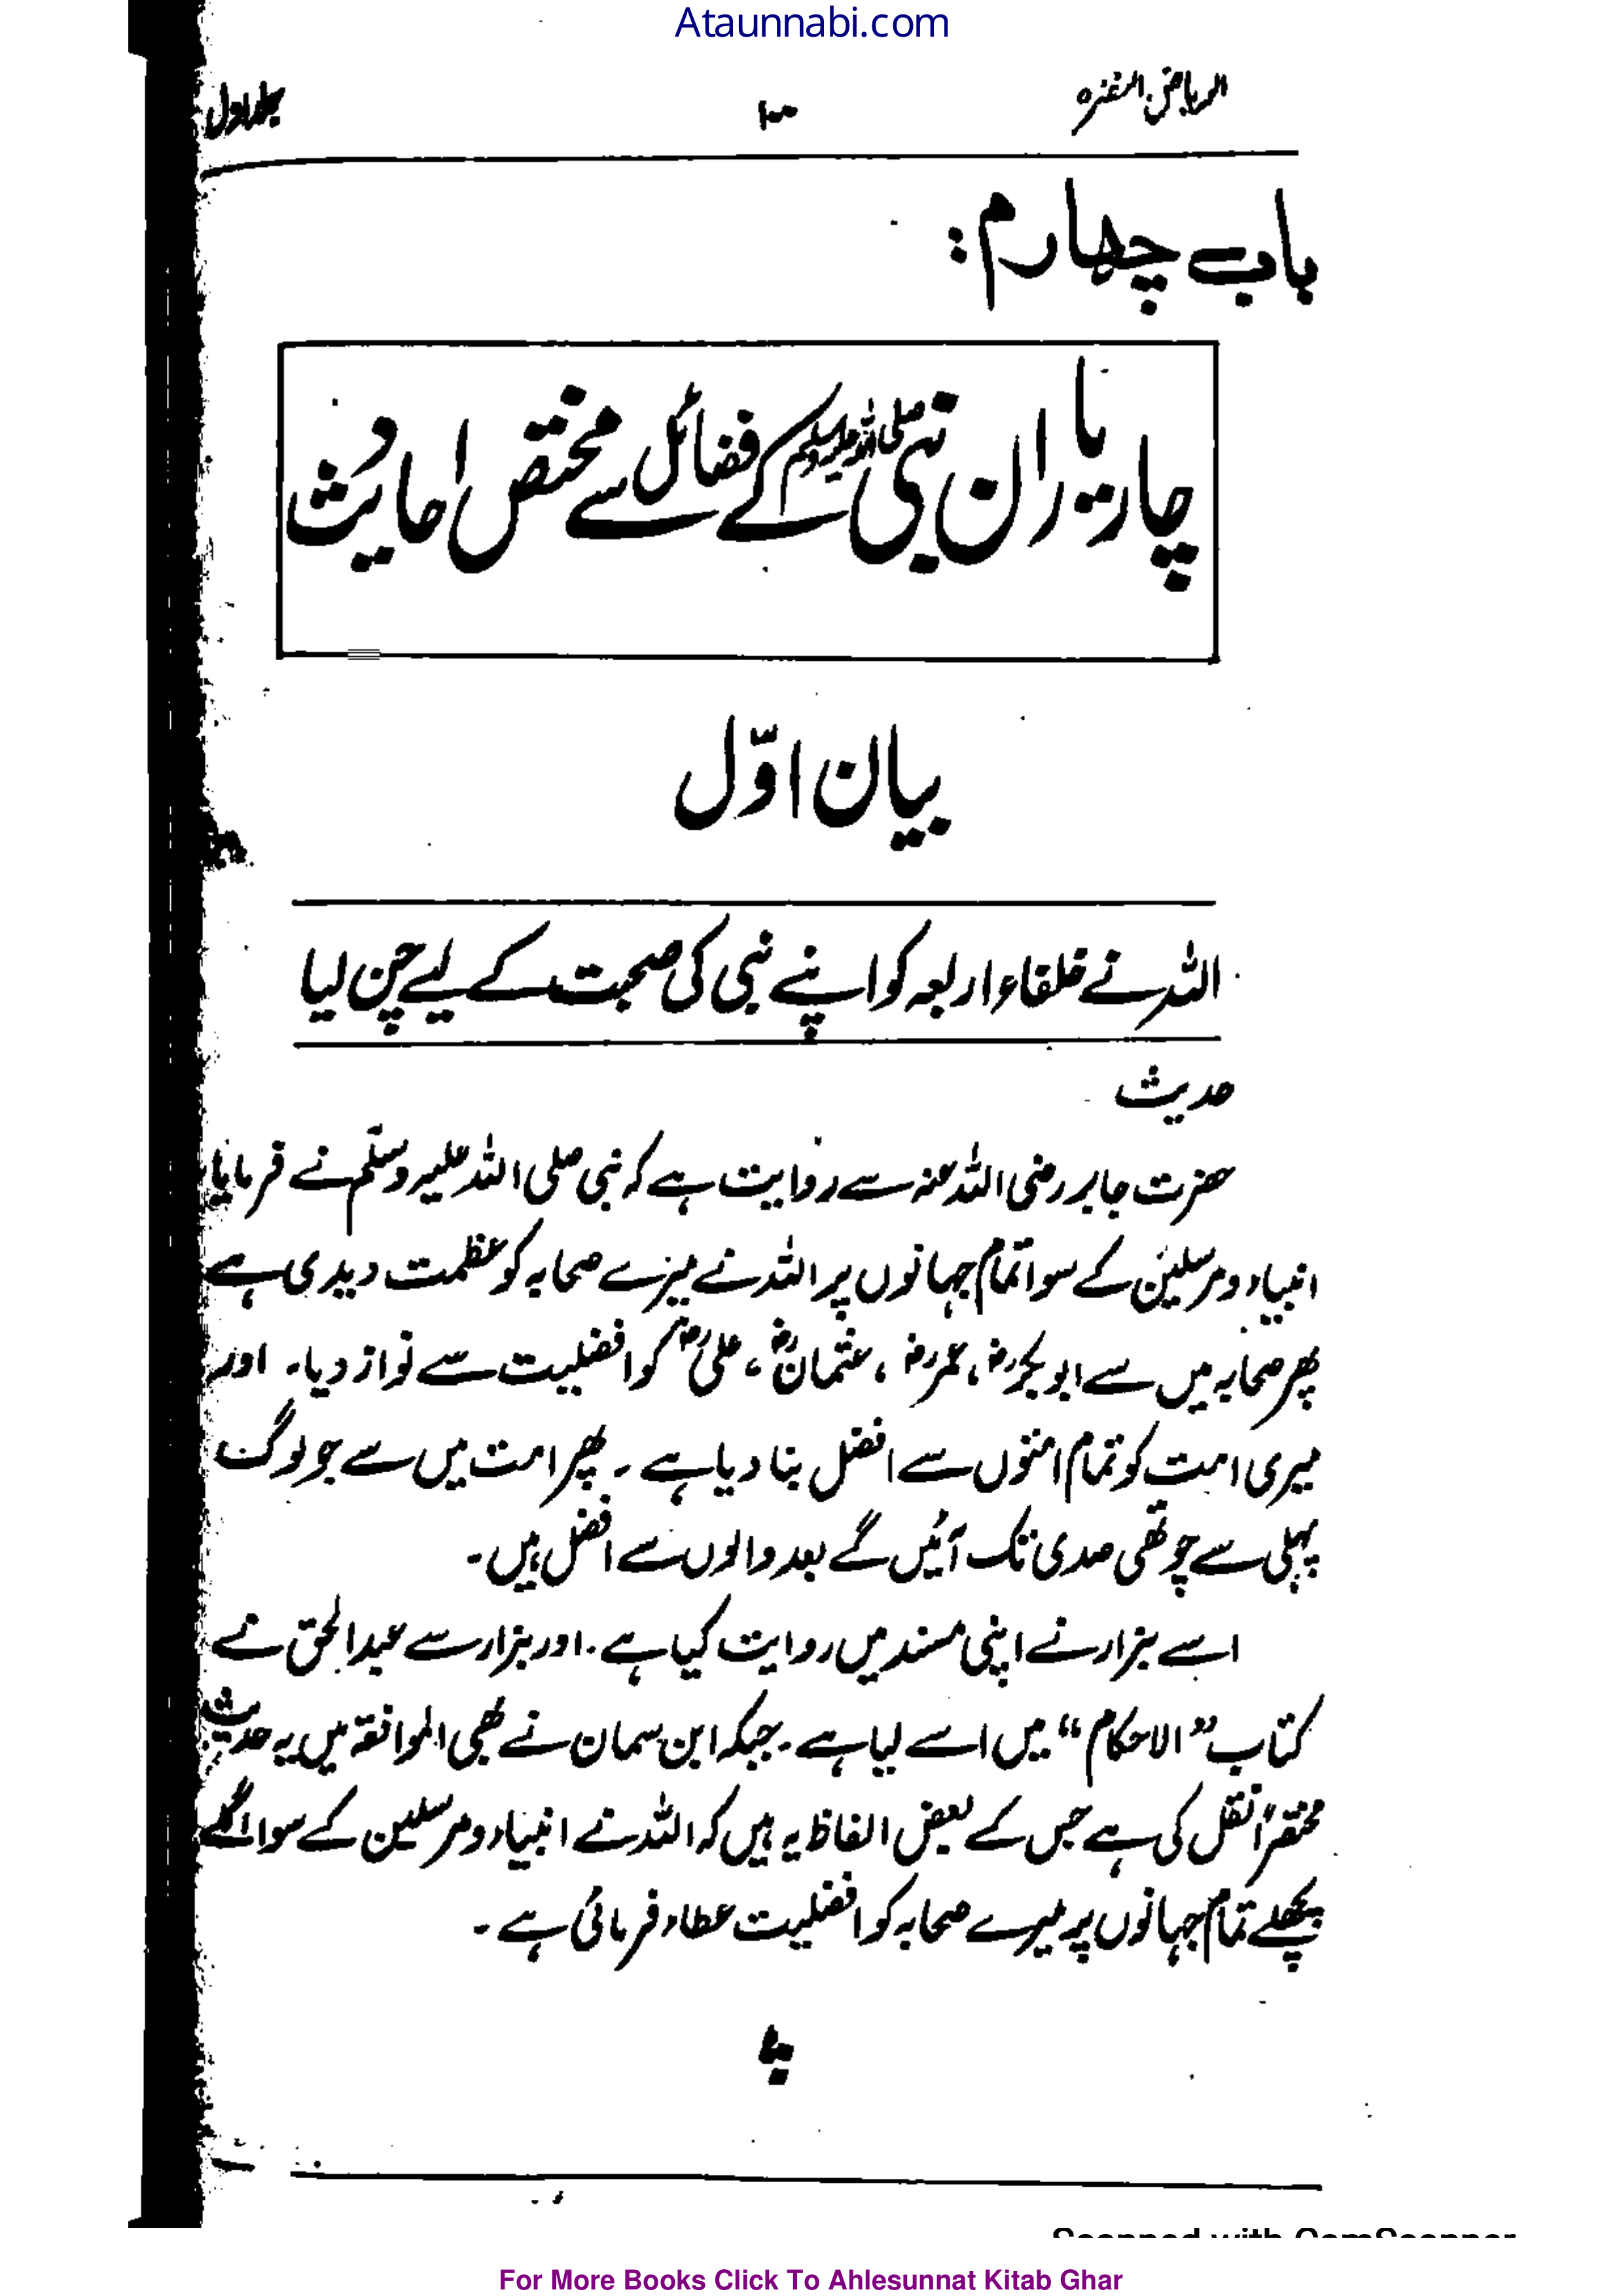 Ataunnabi.com
الریاض النضرہ ۱۰۰ جلد اول
باب چہارم:
چار یاران نبی صلی اللہ علیہ وسلم کے فضائل سے مختص احادیث
بیان اوّل
اللہ نے خلفاء اربعہ کو اپنے نبی کی صحبت کے لیے چن لیا
حدیث
حضرت جابر رضی اللہ عنہ سے روایت ہے کہ نبی صلی اللہ علیہ وسلّم نے فرمایا
انبیاء و مرسلین کے سوا تمام جہانوں پر اللہ نے میرے صحابہ کو عظمت دیدی ہے
پھر صحابہ میں سے ابوبکرؓ، عمرؓ، عثمانؓ، علیؓ کو افضلیت سے نواز دیا۔ اور
میری امت کو تمام امتوں سے افضل بنا دیا ہے۔ پھر امت میں سے جو لوگ
پہلی سے چوتھی صدی تک آئیں گے بعد والوں سے افضل ہیں۔
اسے بزار نے اپنی مسند میں روایت کیا ہے۔ اور بزار سے عبدالحق نے
کتاب ”الاحکام“ میں اسے لیا ہے۔ جبکہ ابن سمان نے بھی الموافقۃ میں یہ حدیث
مختصراً نقل کی ہے جس کے بعض الفاظ یہ ہیں کہ اللہ نے انبیاء و مرسلین کے سوا اگلے
پچھلے تمام جہانوں پر میرے صحابہ کو افضلیت عطاء فرمائی ہے۔
For More Books Click To Ahlesunnat Kitab Ghar